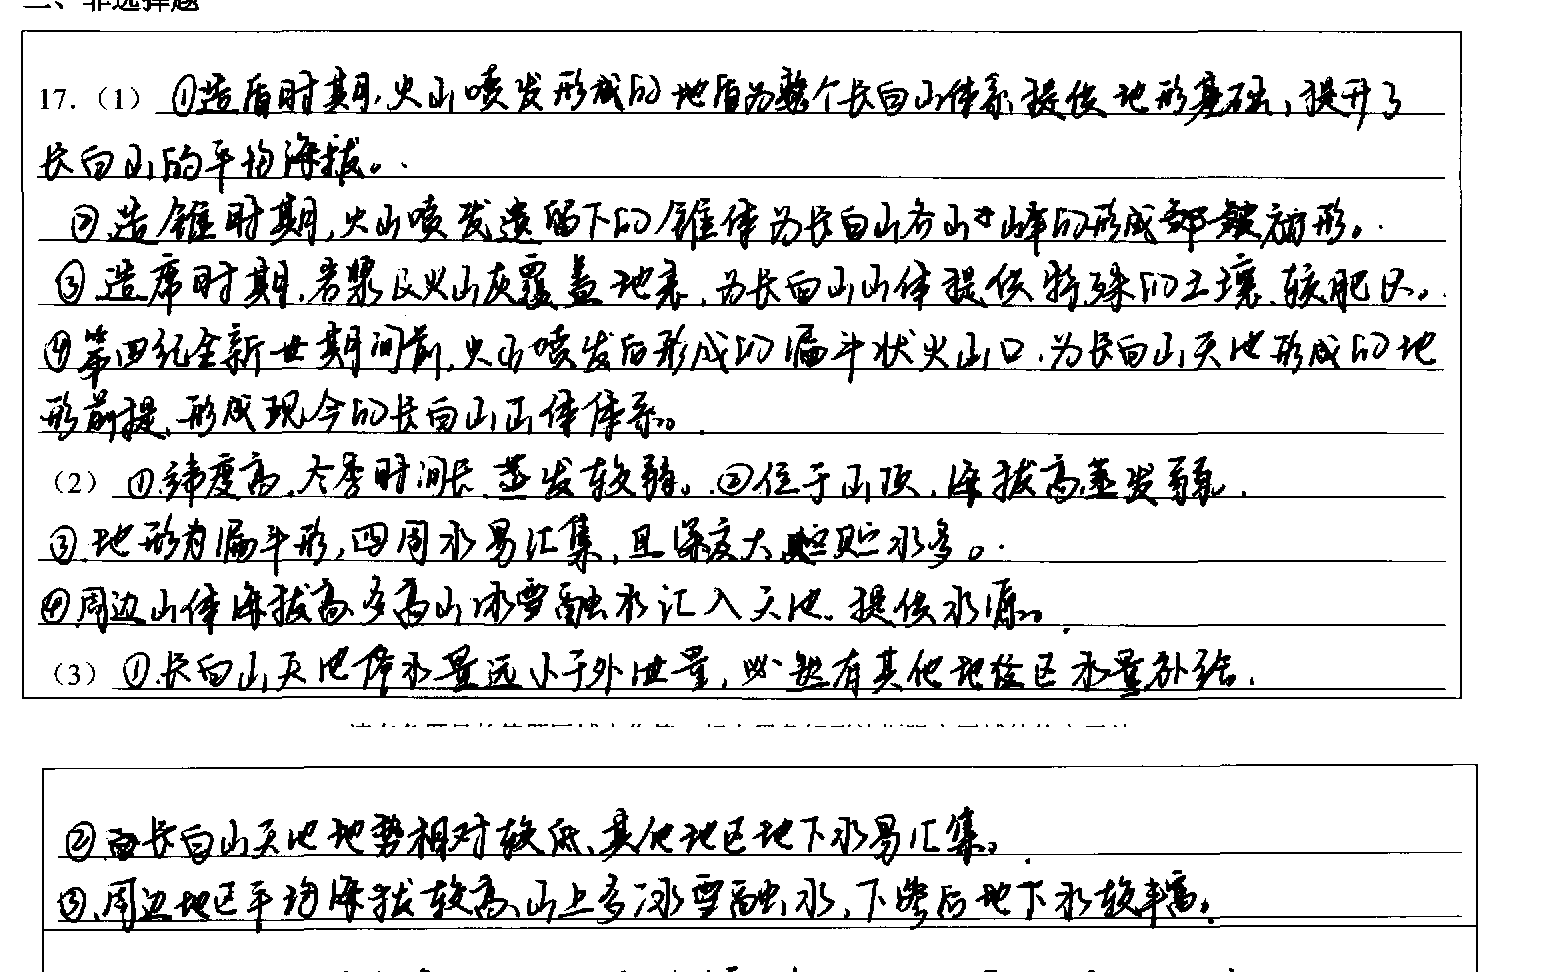 二、非选择题
17.（1）①造盾时期，火山喷发形成的地盾为整个长白山体系提供地形基础，提升了
长白山的平均海拔。
②造锥时期，火山喷发遗留下的锥体为长白山各山峰的形成
③造席时期，岩浆以火山灰覆盖地表，为长白山山体提供特殊的土壤，较肥沃。
④第四纪全新世期间前，火山喷发后形成的漏斗状火山口，为长白山天池形成的地
形前提，形成现今的长白山山体体系。
（2）①纬度高，冬季时间长，蒸发较弱。②位于山顶，海拔高蒸发弱，
③地形为漏斗形，四周水易汇集，且深度大贮水多。
④周边山体海拔高，多高山冰雪融水汇入天池，提供水源。
（3）①长白山天池降水量远小于外泄量，必然有其他地区水量补给，
②长白山天池地势相对较低，其他地区地下水易汇集。
③周边地区平均海拔较高，山上多冰雪融水，下渗后地下水较丰富。